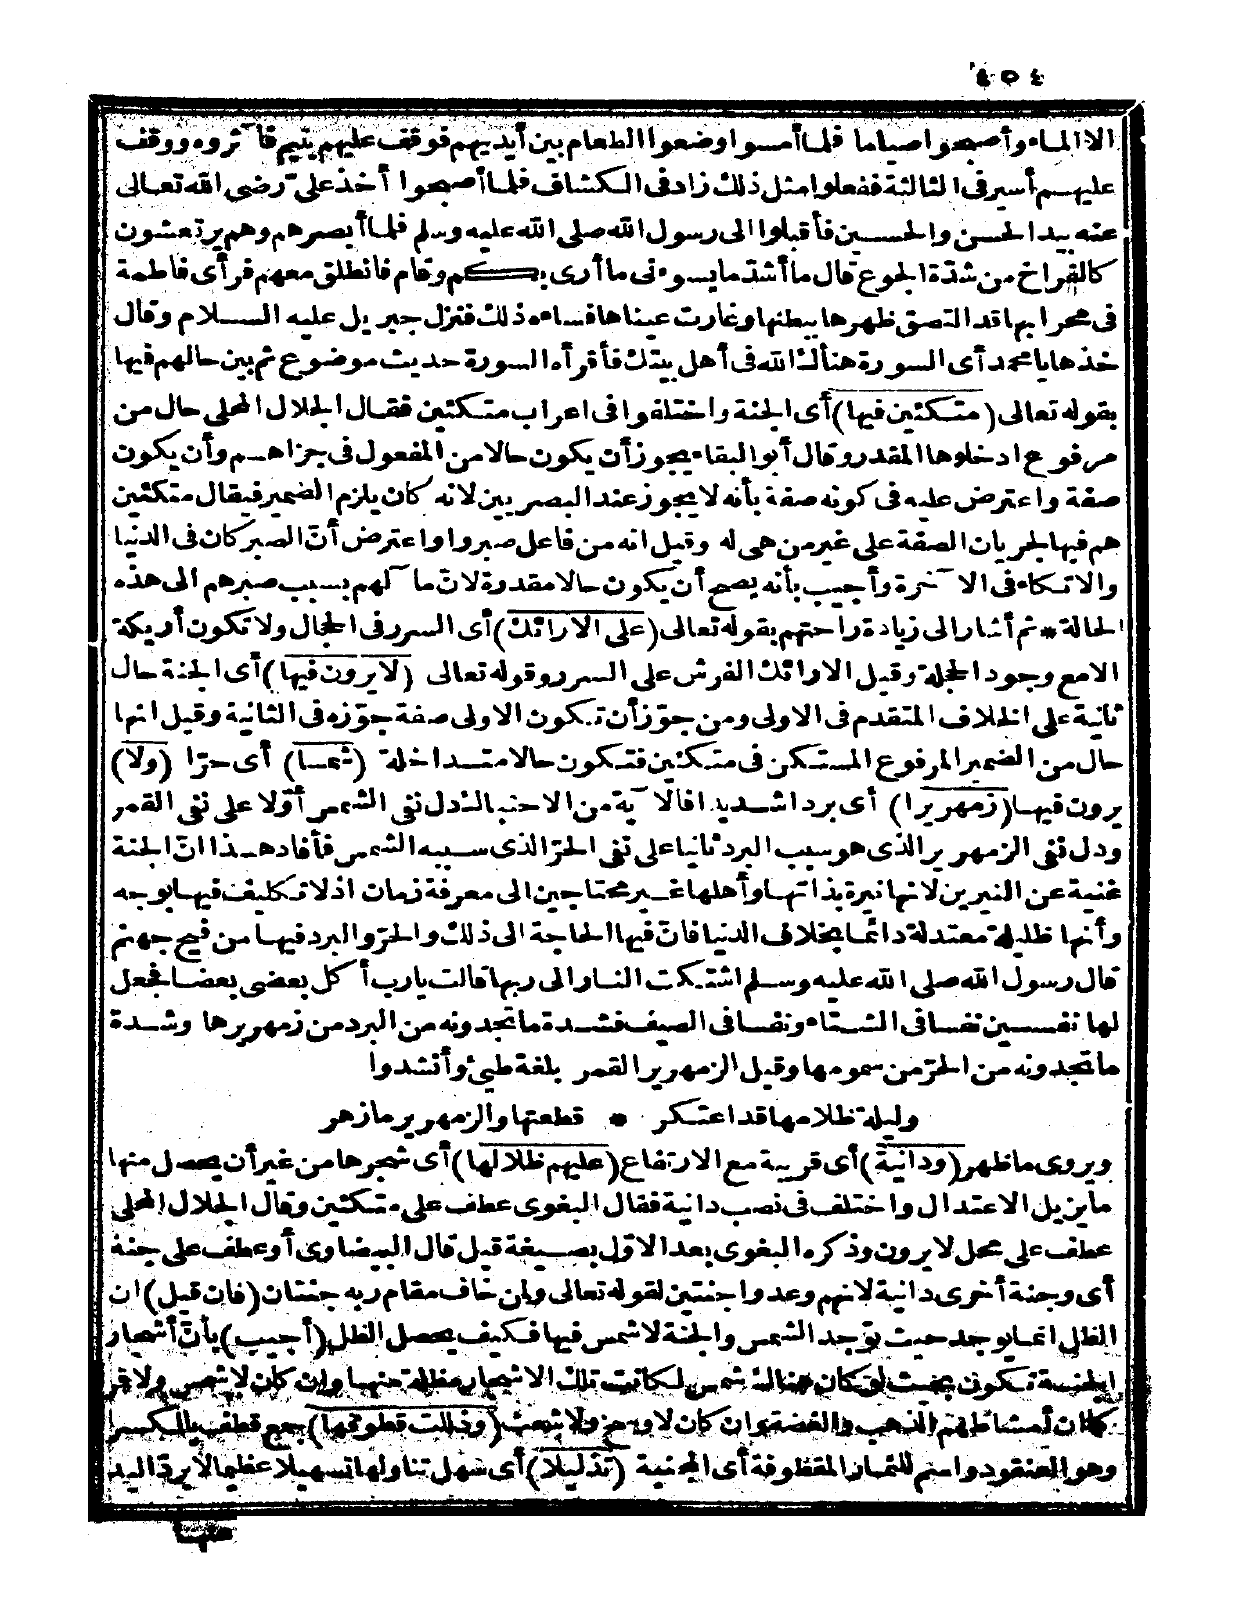 ٤٥٤
الا الماء وأصبحوا صياما فلما أمسوا وضعوا الطعام بين أيديهم فوقف عليهم يتيم فآثروه ووقف
عليهم أسير في الثالثة ففعلوا مثل ذلك زاد في الكشاف فلما أصبحوا أخذ علىّ رضى الله تعالى
عنه بيد الحسن والحسين فأقبلوا الى رسول الله صلى الله عليه وسلم فلما أبصرهم وهم يرتعشون
كالفراخ من شدّة الجوع قال ما أشدّ ما يسوءنى ما أرى بكم وقام فانطلق معهم فرأى فاطمة
فى محرابها قد التصق ظهرها ببطنها وغارت عيناها فساءه ذلك فنزل جبريل عليه السلام وقال
خذها يا محمد أى السورة هنأك الله فى أهل بيتك فأقرأه السورة حديث موضوع ثم بين حالهم فيها
بقوله تعالى (متكئين فيها) أى الجنة واختلفوا فى اعراب متكئين فقال الجلال المحلى حال من
مرفوع ادخلوها المقدر وقال أبو البقاء يجوز أن يكون حالا من المفعول فى جزاهم وأن يكون
صفة واعترض عليه فى كونه صفة بأنه لا يجوز عند البصريين لانه كان يلزم الضمير فيقال متكئين
هم فيها لجريان الصفة على غير من هى له وقيل انه من فاعل صبروا واعترض أنّ الصبر كان فى الدنيا
والاتكاء فى الآخرة وأجيب بأنه يصح أن يكون حالا مقدرة لانّ مآلهم بسبب صبرهم الى هذه
الحالة * ثم أشار الى زيادة راحتهم بقوله تعالى (على الارائك) أى السرر فى الحجال ولا تكون أريكة
الا مع وجود الحجلة وقيل الارائك الفرش على السرر وقوله تعالى (لا يرون فيها) أى الجنة حال
ثانية على الخلاف المتقدم فى الاولى ومن جوّز أن تكون الاولى صفة جوّزه فى الثانية وقيل انها
حال من الضمير المرفوع المستكن فى متكئين فتكون حالا متداخلة (شمسا) أى حرّا (ولا)
يرون فيها (زمهريرا) أى بردا شديدا فالآية من الاحتباك دل نفى الشمس أوّلا على نفى القمر
ودل نفى الزمهرير الذى هو سبب البرد ثانيا على نفى الحرّ الذى سببه الشمس فأفاد هذا انّ الجنة
غنية عن النيرين لانها نيرة بذاتها وأهلها غير محتاجين الى معرفة زمان اذ لا تكليف فيها بوجه
وأنها ظليلة معتدلة دائما بخلاف الدنيا فانّ فيها الحاجة الى ذلك والحرّ والبرد فيها من فيح جهنم
قال رسول الله صلى الله عليه وسلم اشتكت النار الى ربها قالت يا رب أكل بعضى بعضا فجعل
لها نفسين نفسا فى الشتاء ونفسا فى الصيف فشدة ما تجدونه من البرد من زمهريرها وشدة
ما تجدونه من الحرّ من سمومها وقيل الزمهرير القمر بلغة طيئ وأنشدوا
وليلة ظلامها قد اعتكر * قطعتها والزمهرير ما زهر
ويروى ما ظهر (ودانية) أى قريبة مع الارتفاع (عليهم ظلالها) أى شجرها من غير أن يحصل منها
ما يزيل الاعتدال واختلف فى نصب دانية فقال البغوى عطف على متكئين وقال الجلال المحلى
عطف على محل لا يرون وذكره البغوى بعد الاوّل بصيغة قيل قال البيضاوى أو عطف على جنة
أى وجنة أخرى دانية لانهم وعدوا جنتين لقوله تعالى ولمن خاف مقام ربه جنتان (فان قيل) ان
الظل انما يوجد حيث توجد الشمس والجنة لا شمس فيها فكيف يحصل الظل (أجيب) بأنّ أشجار
الجنة تكون بحيث لو كان هناك شمس لكانت تلك الاشجار مظلة منها وان كان لا شمس ولا قمر
كما ان أمشاطهم الذهب والفضة وان كان لا وسخ ولا شعث (وذللت قطوفها) جمع قطف بالكسر
وهو العنقود واسم للثمار المقطوفة أى المجنية (تذليلا) أى سهل تناولها تسهيلا عظيما لا يردّ اليد